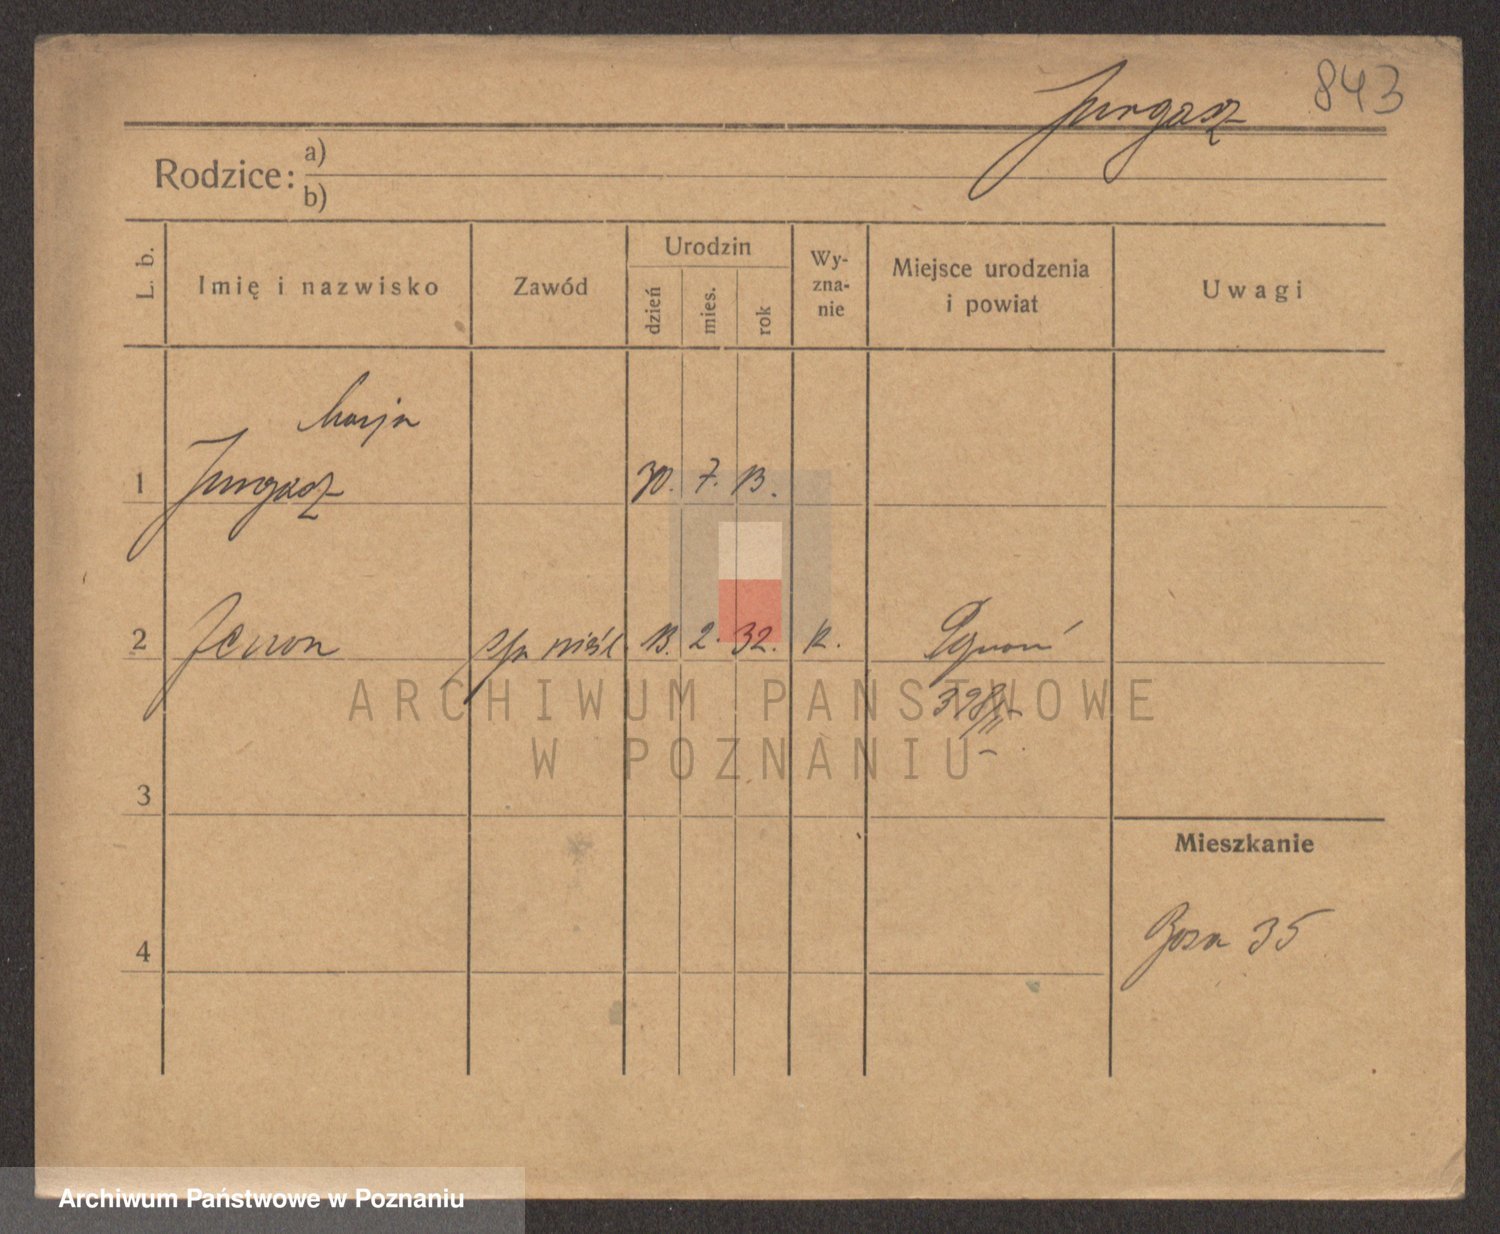 843
Jurgasz
Rodzice:
a)
b)
L. b.
Imię i nazwisko
Zawód
Urodzin
dzień
mies.
rok
Wy-
zna-
nie
Miejsce urodzenia
i powiat
Uwagi
Marja
1 Jurgasz 30. 7. 13.
2 Zenon 13. 2. 32.
3
Mieszkanie
4
35
ARCHIWUM PAŃSTWOWE
W POZNANIU
Archiwum Państwowe w Poznaniu